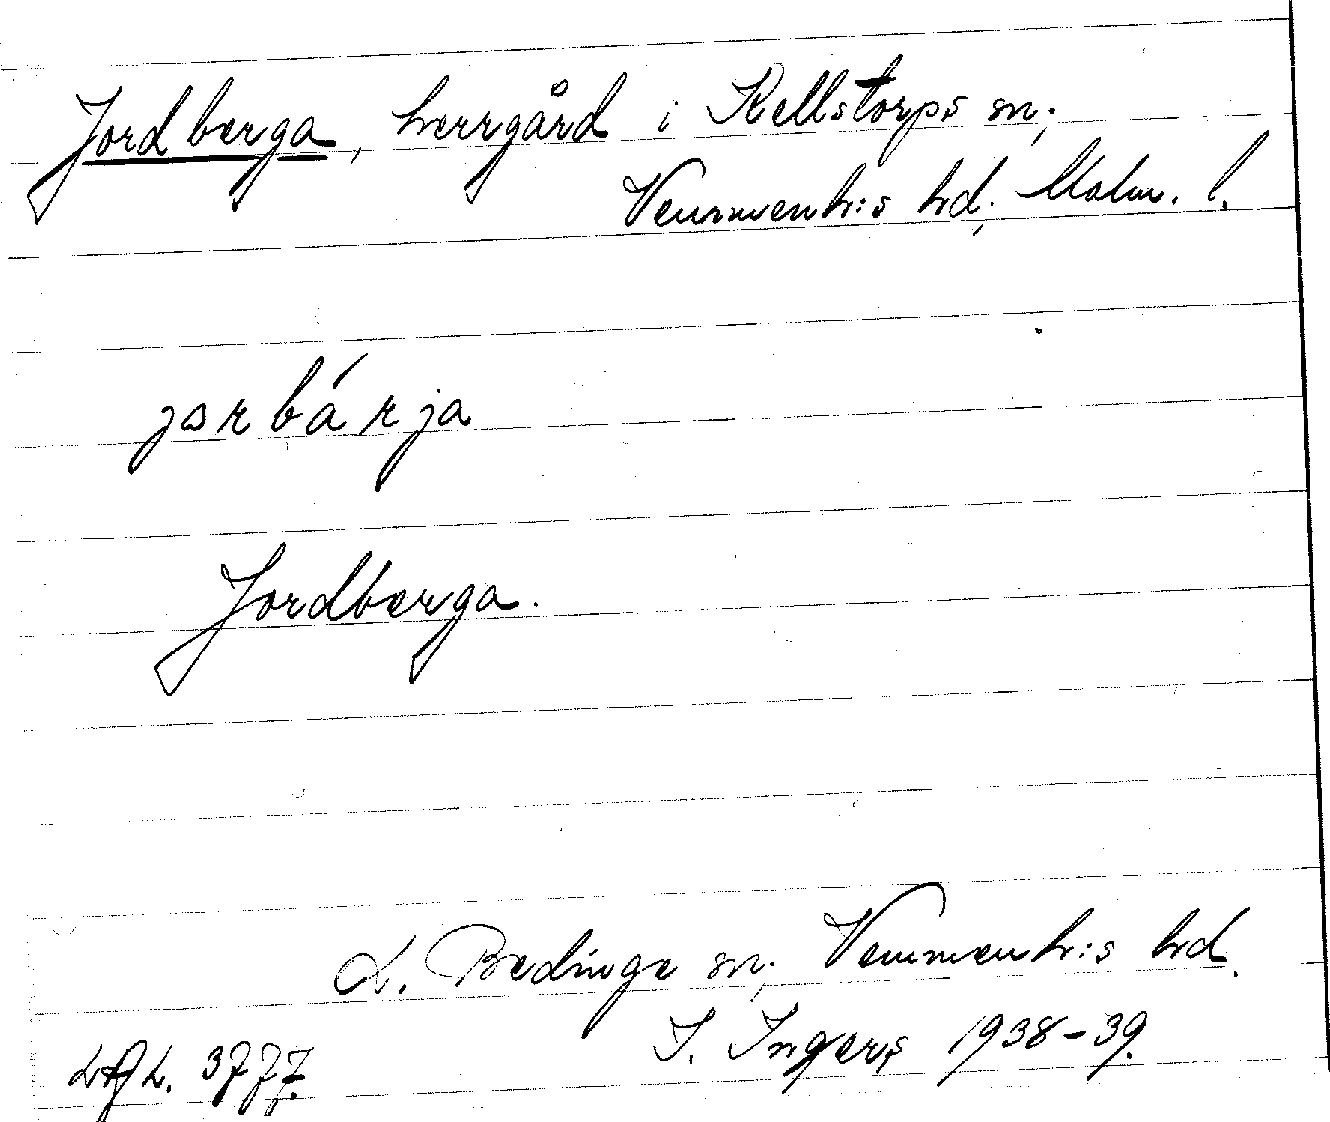 Jordberga, herrgård i Kellstorps sn;
Vemmenh:s hd, Malm. l.
jorbárja
Jordberga.
L. Bedinge sn; Vemmenh:s hd.
I. Ingers 1938-39.
LAL. 3777.